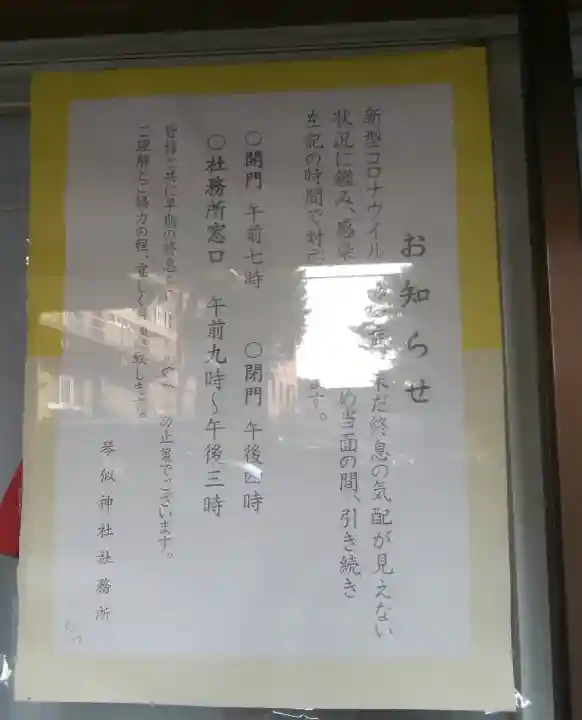 お知らせ
新型コロナウイル 未だ終息の気配が見えない
状況に鑑み、感染 め当面の間、引き続き
左記の時間で対応 ます。
〇開門 午前七時 〇閉門 午後四時
〇社務所窓口 午前九時～午後三時
皆様と共に早期の終息を の止算でございます。
ご理解とご協力の程、宜しく 致します。
琴似神社社務所